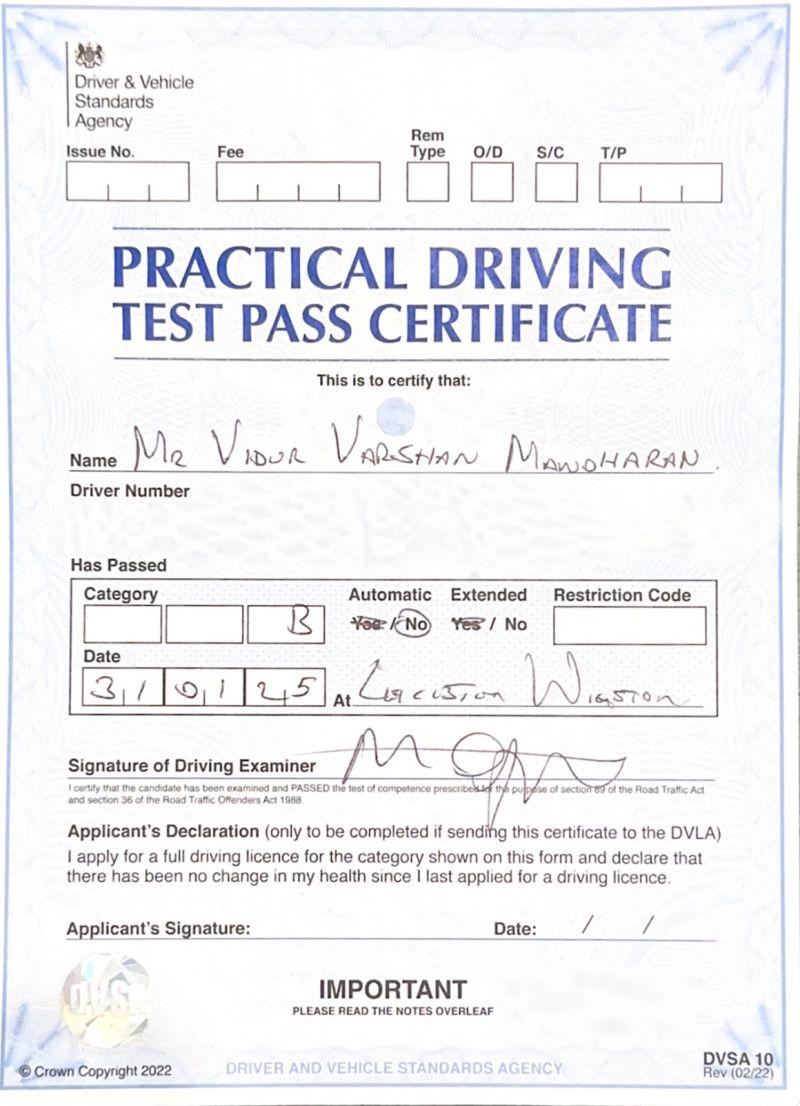 Driver & Vehicle
Standards
Agency
Issue No. Fee Rem Type O/D S/C T/P
PRACTICAL DRIVING
TEST PASS CERTIFICATE
This is to certify that:
Name MR VIDUR VARSHAN MANOHARAN
Driver Number
Has Passed
Category Automatic Extended Restriction Code
B Yes / No Yes / No
Date
31 01 25 At LEICESTER WIGSTON
Signature of Driving Examiner
I certify that the candidate has been examined and PASSED the test of competence prescribed for the purpose of section 89 of the Road Traffic Act
and section 36 of the Road Traffic Offenders Act 1988.
Applicant's Declaration (only to be completed if sending this certificate to the DVLA)
I apply for a full driving licence for the category shown on this form and declare that
there has been no change in my health since I last applied for a driving licence.
Applicant's Signature: Date: / /
DVSA
IMPORTANT
PLEASE READ THE NOTES OVERLEAF
© Crown Copyright 2022 DRIVER AND VEHICLE STANDARDS AGENCY DVSA 10
Rev (02/22)